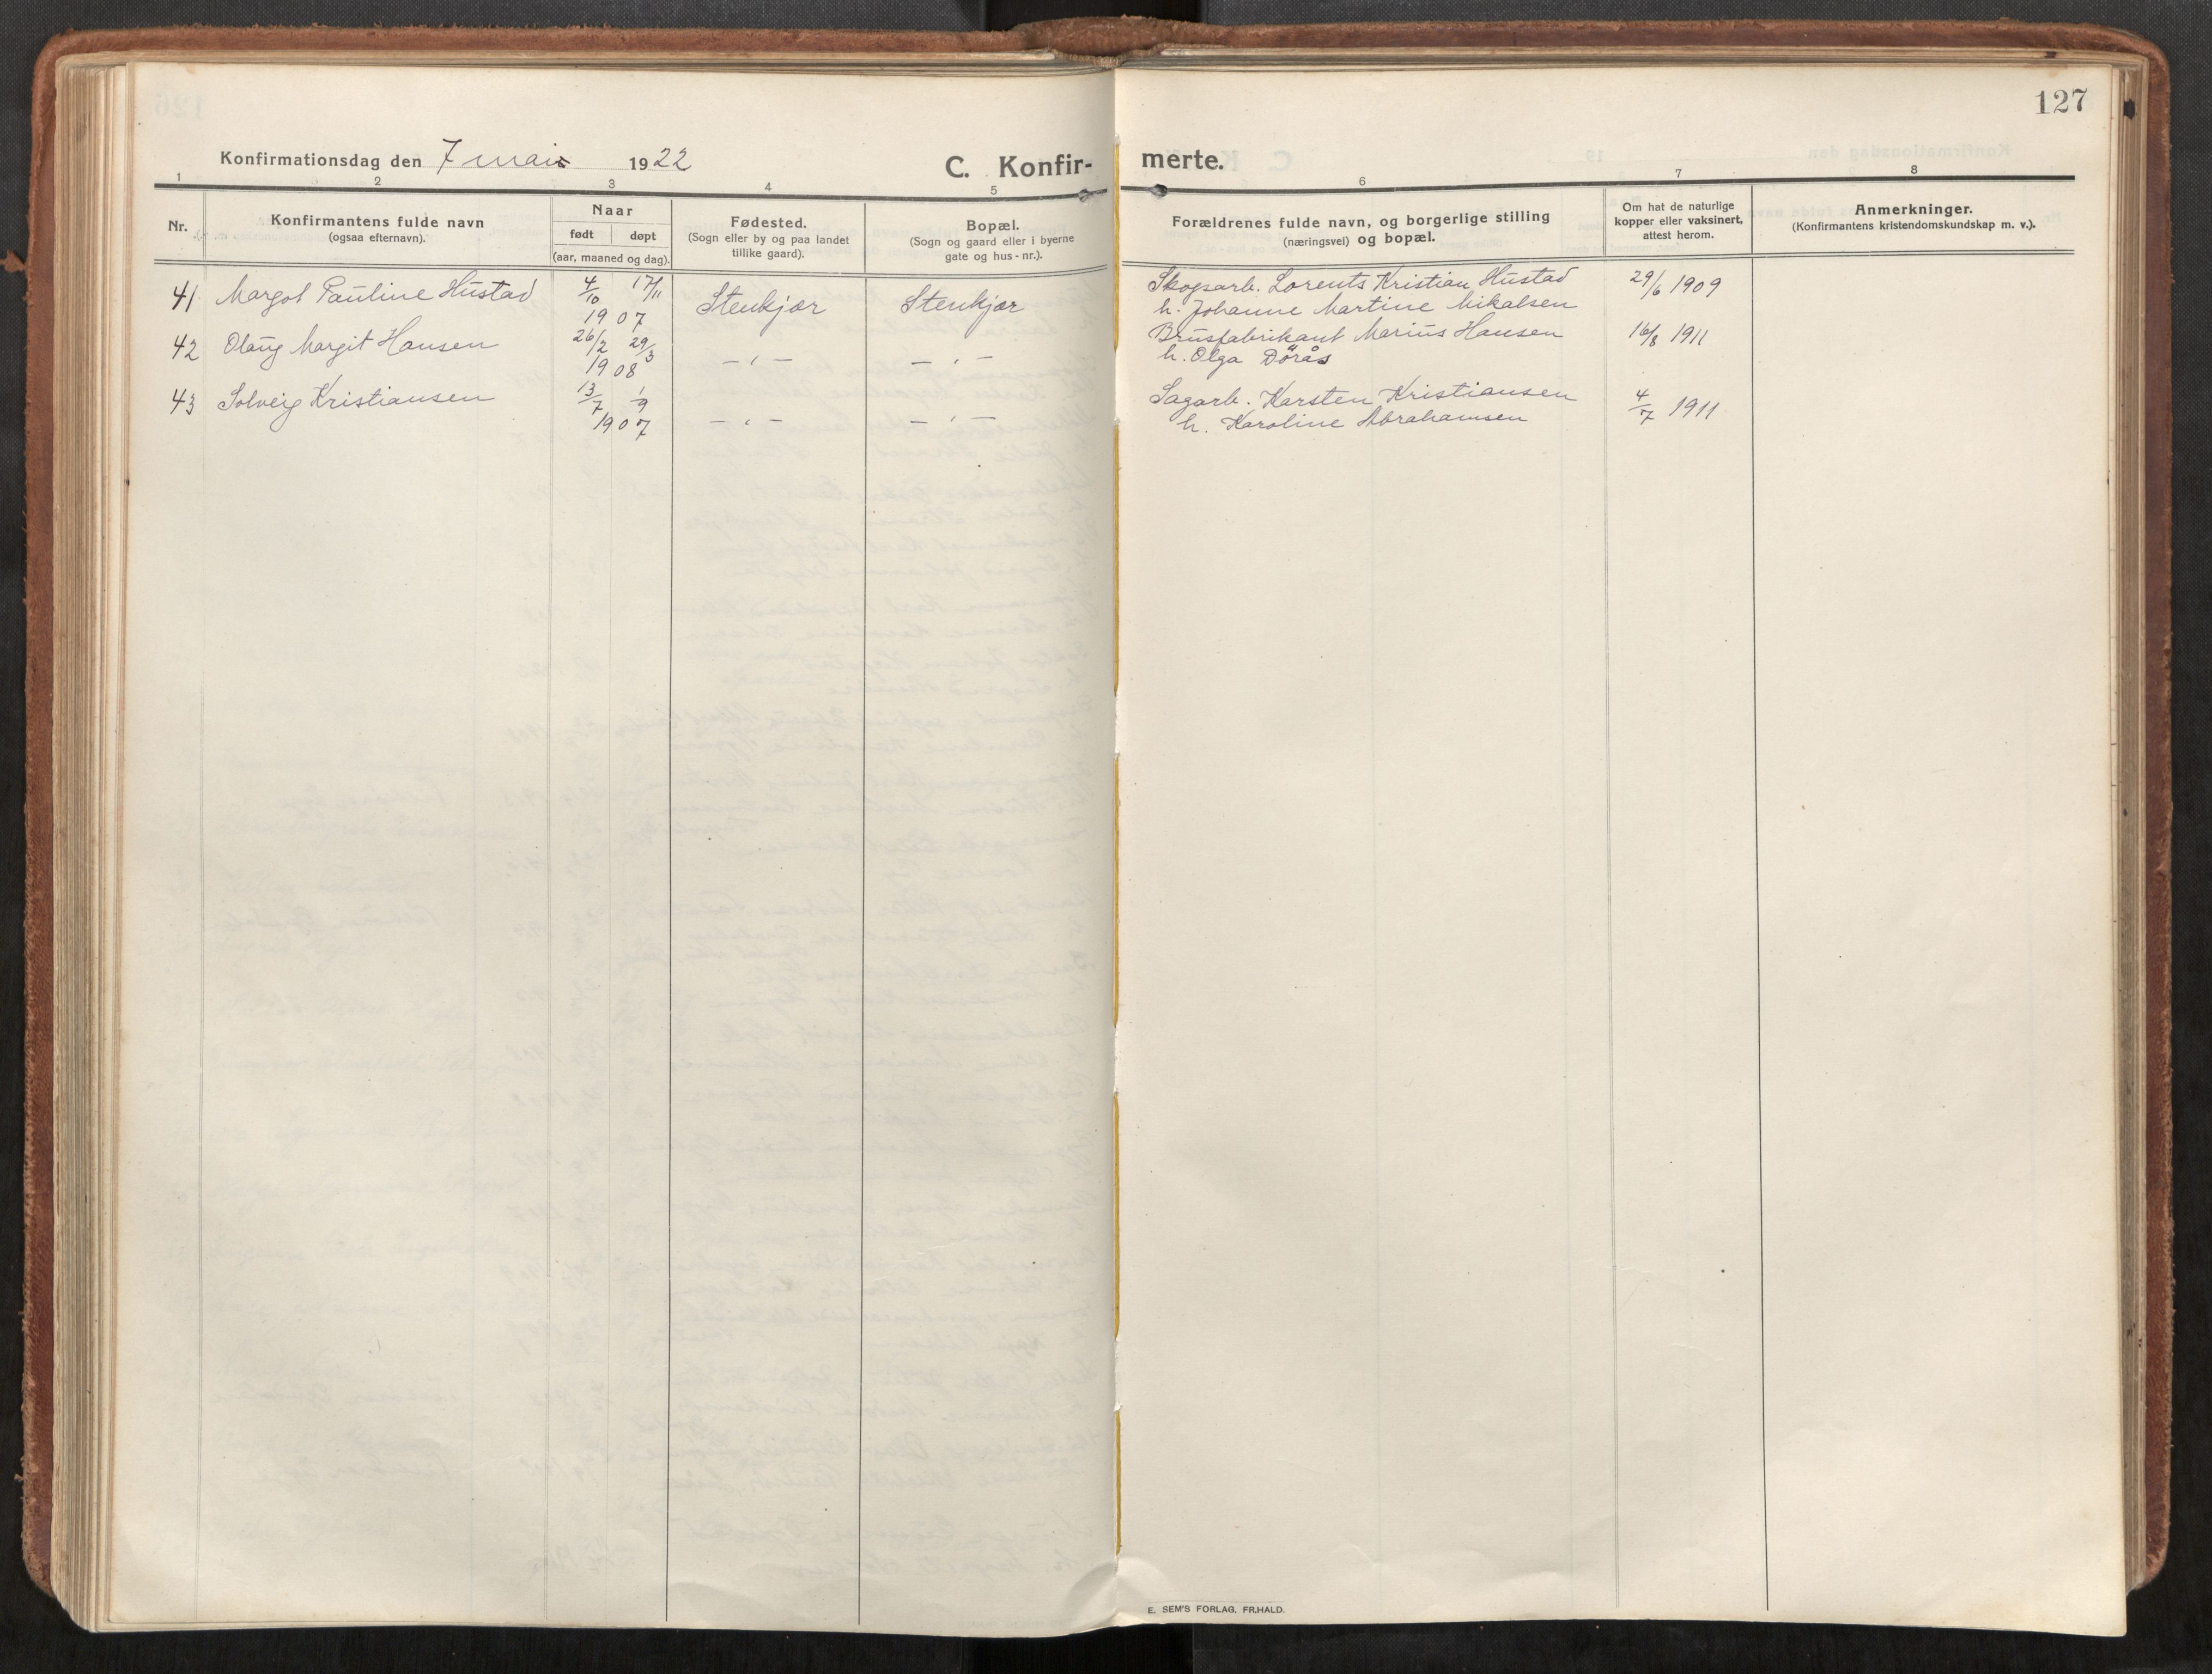 127
Konfirmationsdag den 7 mai 1922 C. Konfir- merte.
1 2 3 4 5 6 7 8
Nr.
Konfirmantens fulde navn
(ogsaa efternavn).
Naar
født døpt
(aar, maaned og dag).
Fødested.
(Sogn eller by og paa landet
tillike gaard).
Bopæl.
(Sogn og gaard eller i byerne
gate og hus-nr.).
Forældrenes fulde navn, og borgerlige stilling
(næringsvei) og bopæl.
Om hat de naturlige
kopper eller vaksinert,
attest herom.
Anmerkninger.
(Konfirmantens kristendomskundskap m. v.).
41 Margot Pauline Hustad 4/10 17/11 1907 Stenkjær Stenkjær
Skogsarb. Lorents Kristian Hustad 29/6 1909
h. Johanne Martine Mikalsen
42 Olaug Margit Hansen 26/2 29/3 1908 — " — — " —
Brusfabrikant Marius Hansen 16/8 1911
h. Olga Dørås
43 Solveig Kristiansen 13/7 1/9 1907 — " — — " —
Sagarb. Karsten Kristiansen 4/7 1911
h. Karoline Abrahamsen
E. SEM'S FORLAG, FR.HALD.